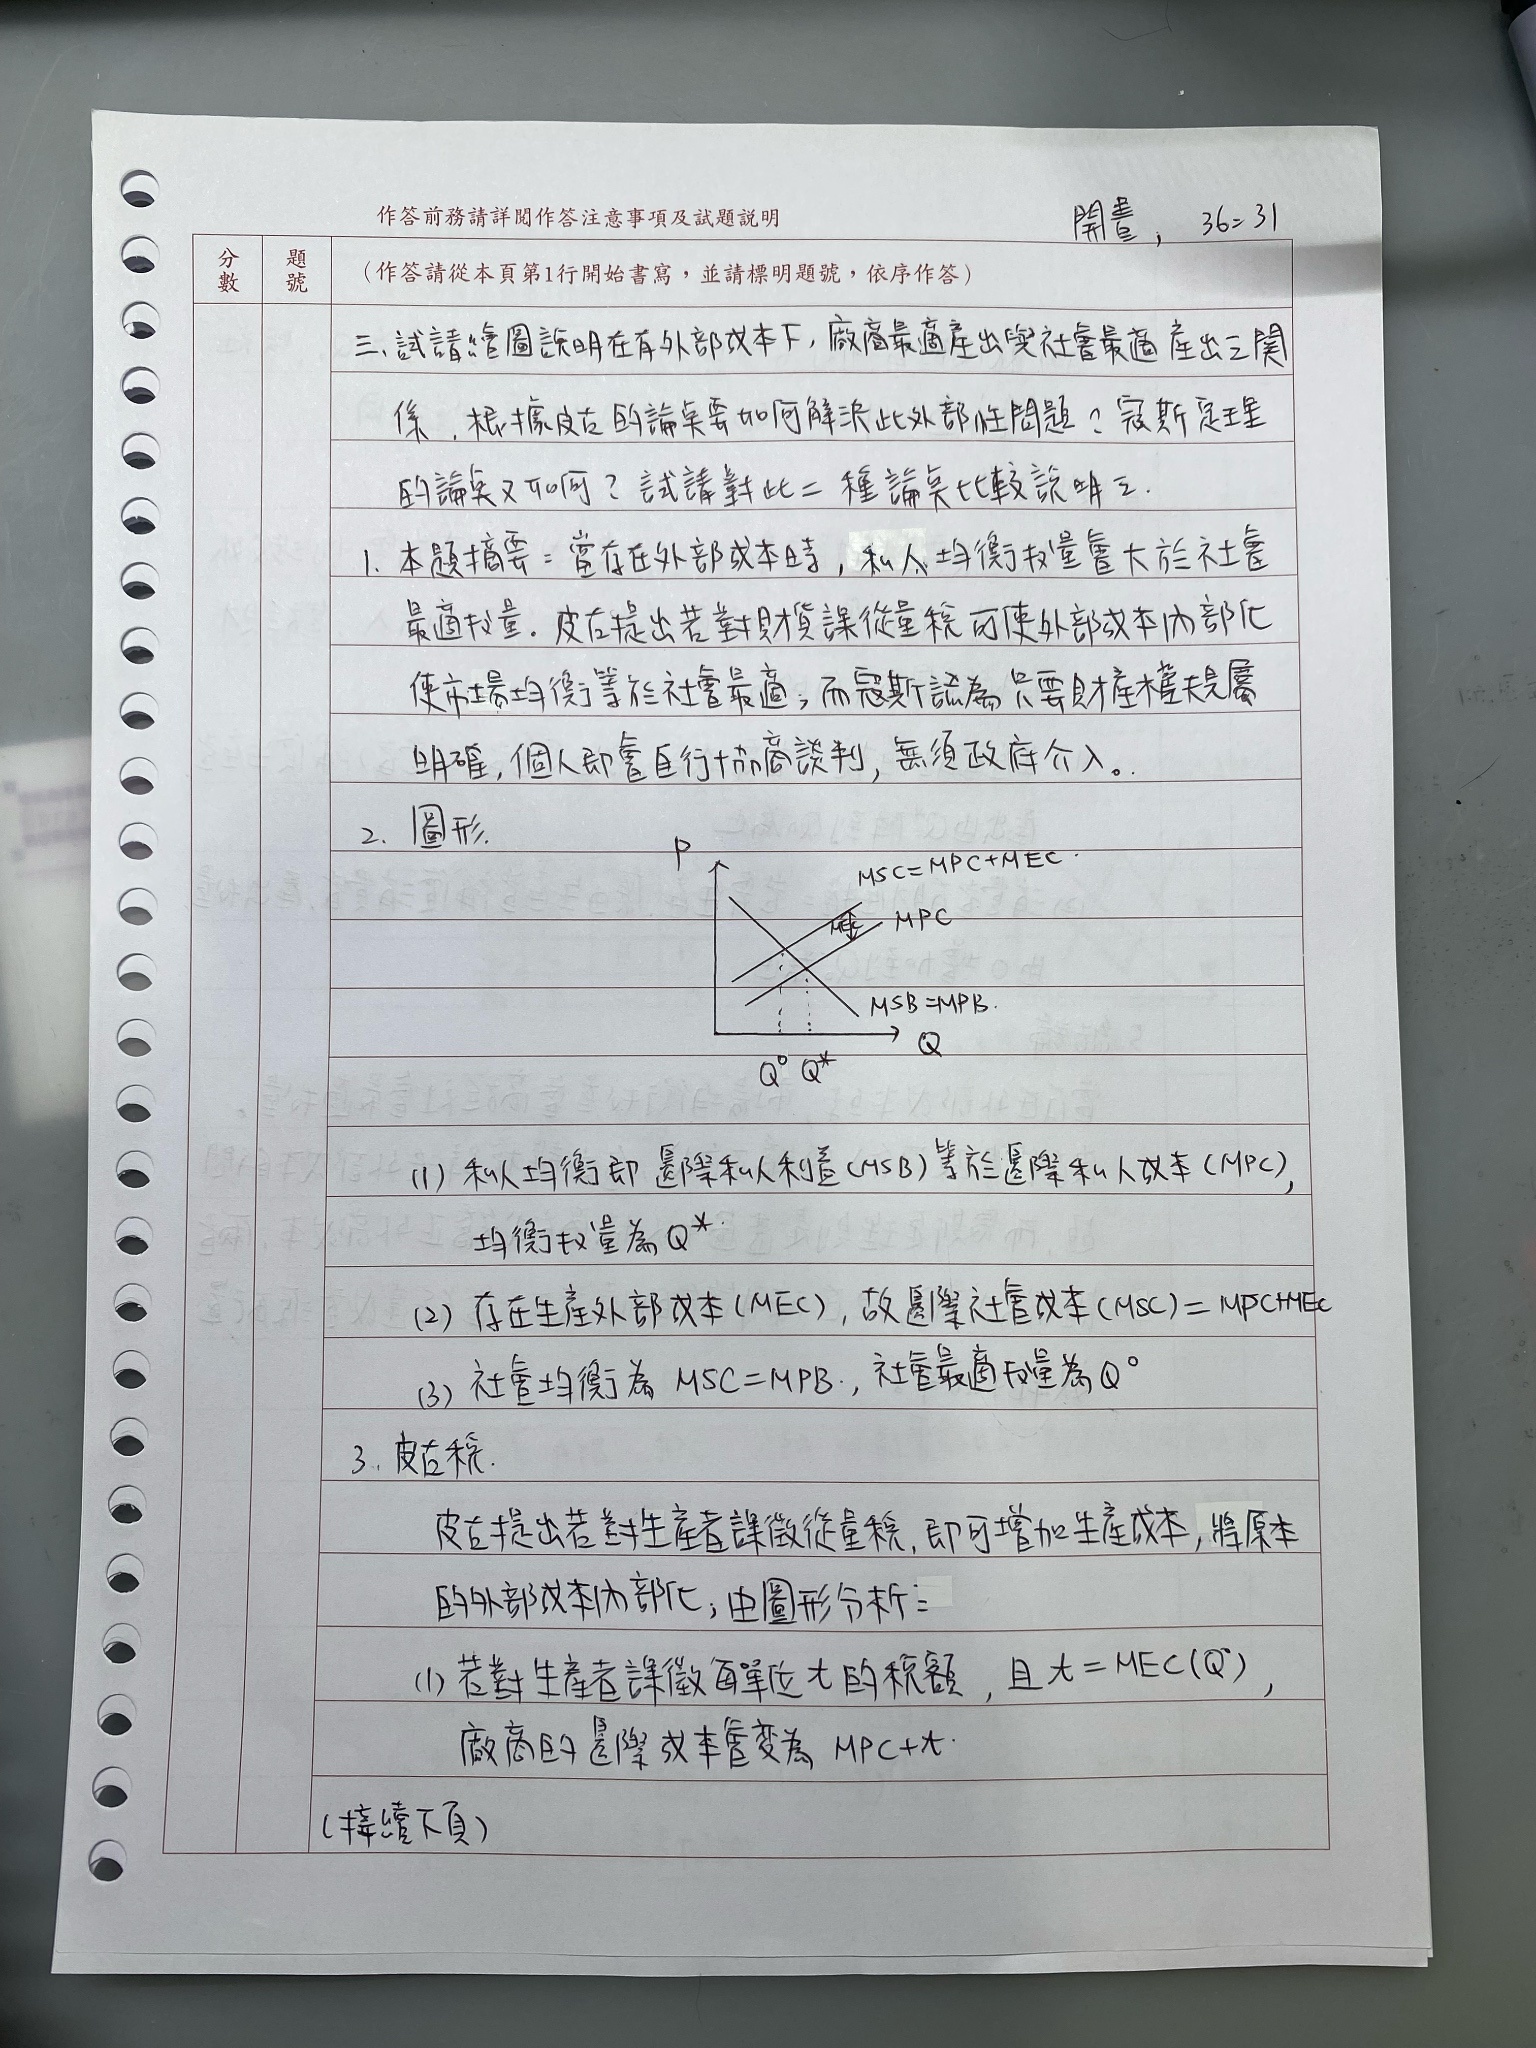 作答前務請詳閱作答注意事項及試題說明
開書, 36=31
分數
題號
(作答請從本頁第1行開始書寫,並請標明題號,依序作答)
三、試請繪圖說明在有外部成本下,廠商最適產出與社會最適產出之關
係,根據皮古的論點要如何解決此外部性問題?寇斯定理
的論點又如何?試請對此二種論點比較說明之.
1. 本題摘要:當存在外部成本時,私人均衡數量會大於社會
最適數量.皮古提出若對財貨課從量稅可使外部成本內部化
使市場均衡等於社會最適;而寇斯認為只要財產權夫見屬
明確,個人即會自行協商談判,無須政府介入。
2. 圖形.
P
MSC=MPC+MEC.
MEC
MPC
MSB=MPB.
Q
Q° Q*
(1) 私人均衡即邊際私人利益(MSB)等於邊際私人成本(MPC),
均衡數量為Q*.
(2) 存在生產外部成本(MEC),故邊際社會成本(MSC)=MPC+MEC
(3) 社會均衡為 MSC=MPB.,社會最適數量為Q°
3. 皮古稅.
皮古提出若對生產者課徵從量稅,即可增加生產成本,將原本
的外部成本內部化;由圖形分析:
(1) 若對生產者課徵每單位t的稅額,且t=MEC(Q°),
廠商的邊際成本會變為 MPC+t.
(接續下頁)